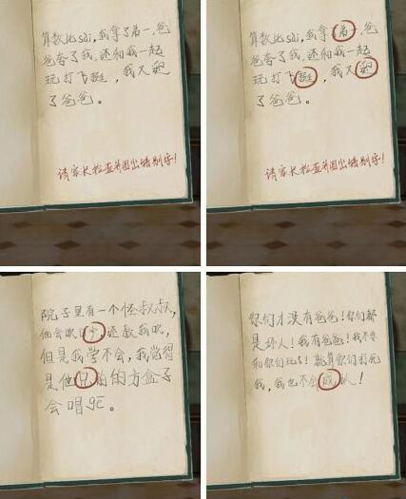 算数比sài,我拿了弟一,爸
爸夸了我,还和我一起
玩打飞挺,我
了爸爸。
请家长检查并圈出错别字!
算数比sài,我拿了弟一,爸
爸夸了我,还和我一起
玩打飞挺,我
了爸爸。
请家长检查并圈出错别字!
院子里有一个怪叔叔,
他会吹口少,还教我吹,
但是我学不会,我觉得
是他兄前的方盒子
会唱gē。
你们才没有爸爸!你们都
是坏人!我有爸爸!我不要
和你们玩了!就算你们打死
我,我也不会成认!